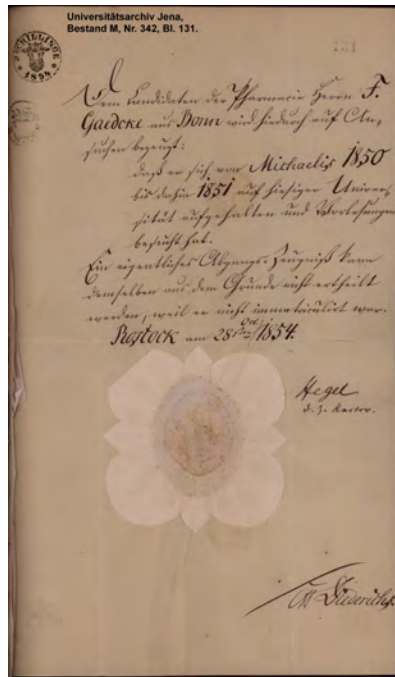 Universitätsarchiv Jena,
Bestand M, Nr. 342, Bl. 131.
SCHILLINGE
1854
131
Dem Candidaten der Pharmacie Herrn F.
Gaedcke aus Bonn wird hiedurch auf An-
suchen bezeugt:
daß er sich von Michaelis 1850
bis dahin 1851 auf hiesiger Univer-
sität aufgehalten und Vorlesungen
besucht hat.
Ein eigentliches Abgangs-Zeugniß kann
demselben aus dem Grunde nicht ertheilt
werden, weil er nicht immatriculirt war.
Rostock am 28sten Oct. 1854.
Hegel
d. Z. Rector.
Diederichs.